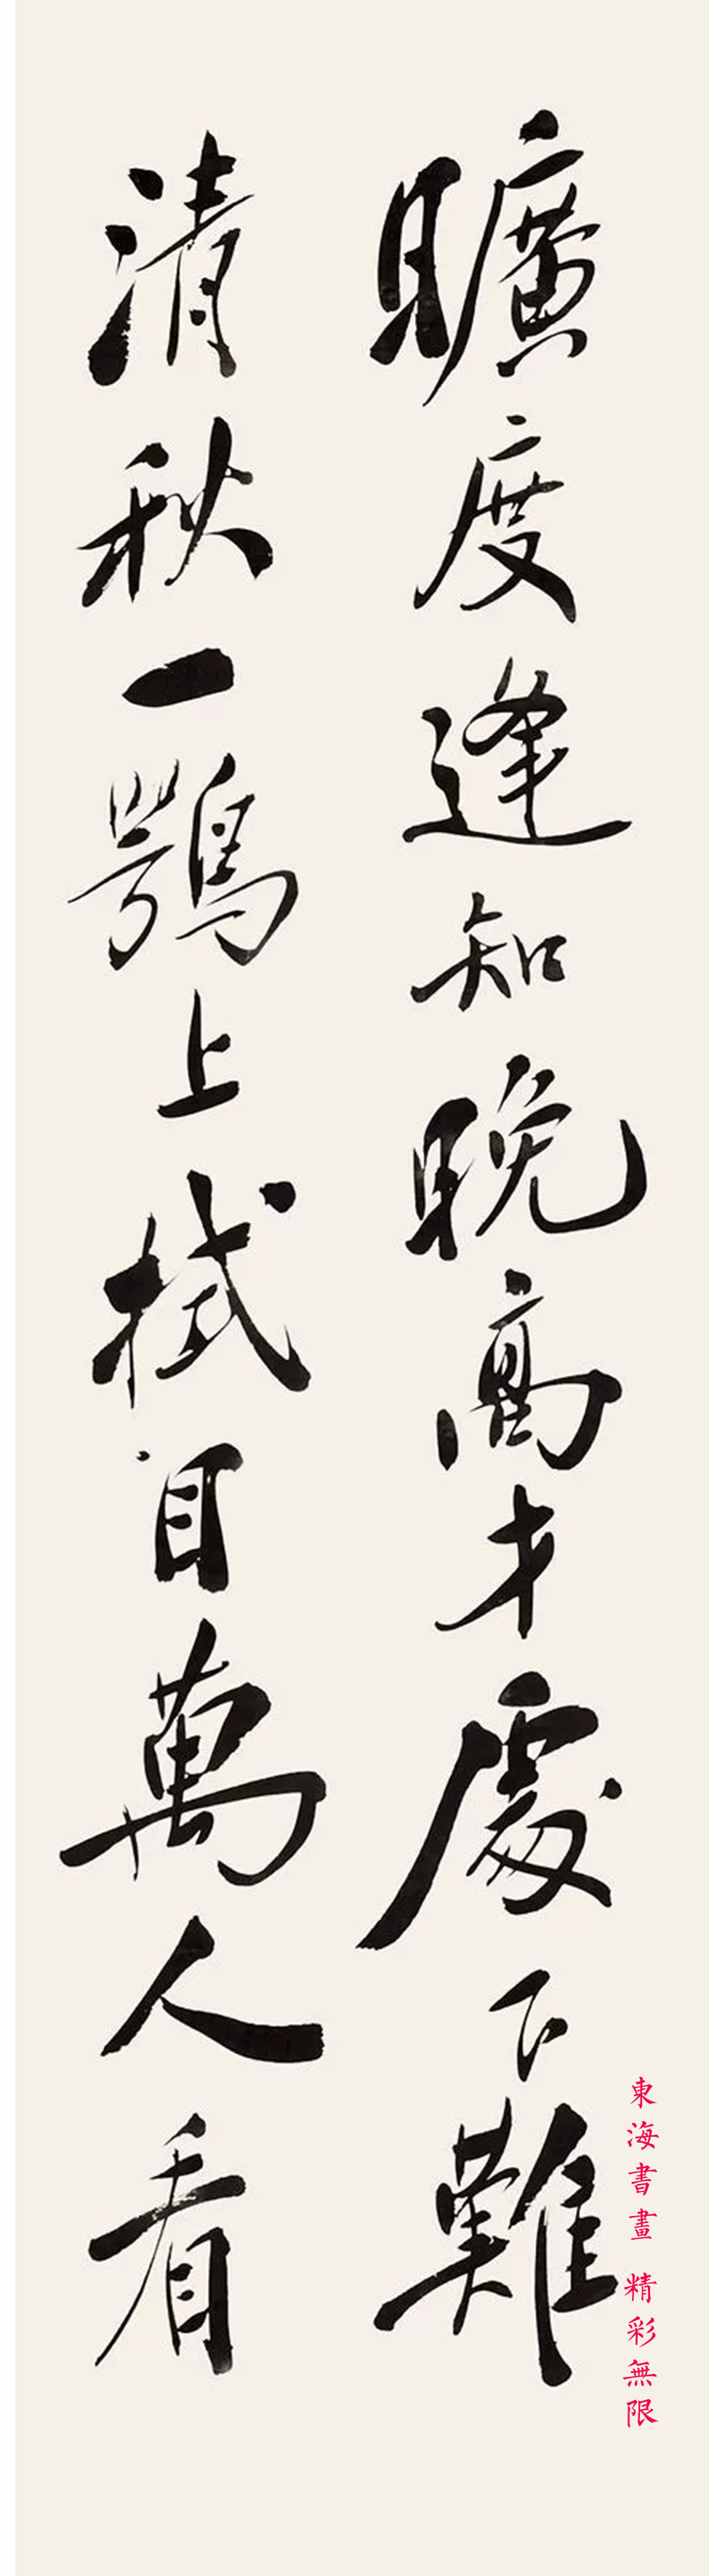 曠度逢知晚高才處下難
清秋一鶚上拭目萬人看
東海書畫 精彩無限